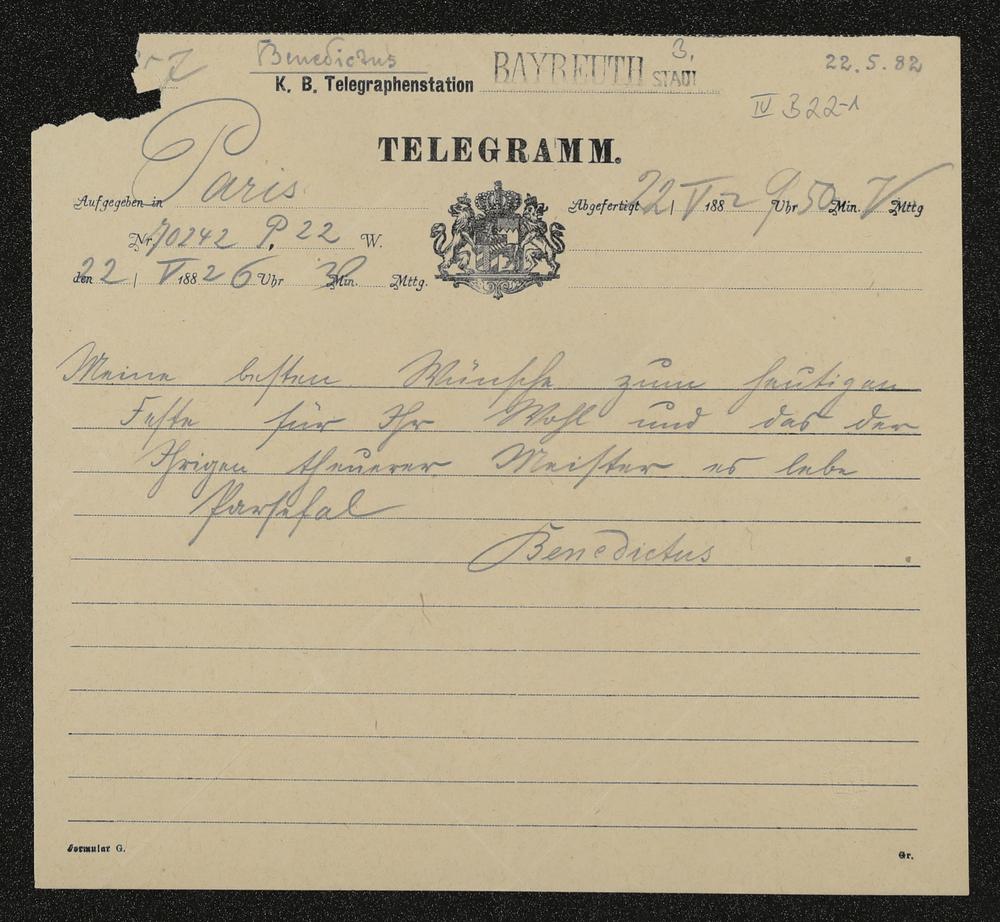 Benedictus 3. 22.5.82
K. B. Telegraphenstation BAYREUTH STADT
IV B 22-1
TELEGRAMM.
Aufgegeben in Paris Abgefertigt 22 / V 1882 9 Uhr 50 Min. V Mttg
Nr. 70242 P. 22 W.
den 22 / V 1882 6 Uhr 30 Min. Mttg.
Meine besten Wünsche zum heutigen
Feste für Ihr Wohl und das der
Ihrigen theuerer Meister es lebe
Parsefal
Benedictus
Formular G. Gr.